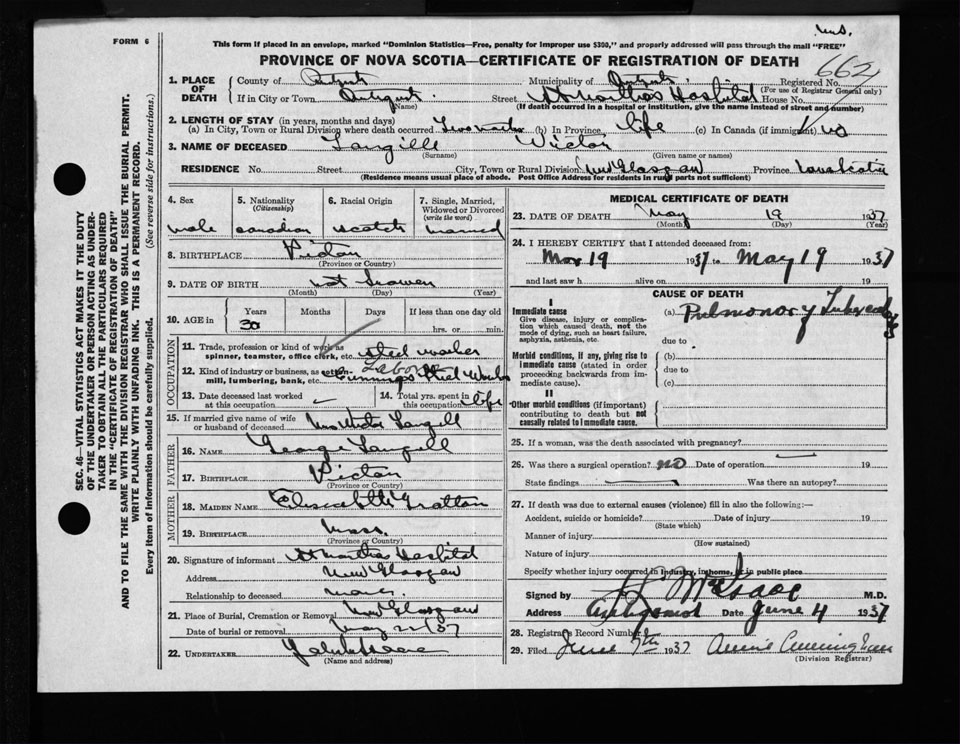 FORM 6
This form if placed in an envelope, marked "Dominion Statistics—Free, penalty for improper use $300," and properly addressed will pass through the mail "FREE"
PROVINCE OF NOVA SCOTIA—CERTIFICATE OF REGISTRATION OF DEATH
662
1. PLACE OF DEATH County of Municipality of Registered No.
(For use of Registrar General only)
If in City or Town Street St Marthas Hospital House No.
(Name) (If death occurred in a hospital or institution, give the name instead of street and number)
2. LENGTH OF STAY (in years, months and days)
(a) In City, Town or Rural Division where death occurred (b) In Province life (c) In Canada (if immigrant)
3. NAME OF DECEASED Langille Victor
(Surname) (Given name or names)
RESIDENCE No. Street City, Town or Rural Division New Glasgow Province Nova Scotia
(Residence means usual place of abode. Post Office Address for residents in rural parts not sufficient)
4. Sex 5. Nationality (Citizenship) 6. Racial Origin 7. Single, Married, Widowed or Divorced (write the word)
male canadian scotch married
8. BIRTHPLACE Pictou
(Province or Country)
9. DATE OF BIRTH not known
(Month) (Day) (Year)
10. AGE in Years Months Days If less than one day
30 hrs. or min.
OCCUPATION
11. Trade, profession or kind of work as spinner, teamster, office clerk, etc. steel worker
12. Kind of industry or business, as cotton mill, lumbering, bank, etc. Steel Works
Labor
13. Date deceased last worked at this occupation 14. Total yrs. spent in this occupation life
15. If married give name of wife or husband of deceased Mrs Victor Langill
FATHER
16. NAME George Langill
17. BIRTHPLACE Pictou
(Province or Country)
MOTHER
18. MAIDEN NAME Elisabeth Gratton
19. BIRTHPLACE Mass.
(Province or Country)
20. Signature of informant St Marthas Hospital
Address New Glasgow
Relationship to deceased
21. Place of Burial, Cremation or Removal New Glasgow
Date of burial or removal May 22/37
22. UNDERTAKER
(Name and address)
MEDICAL CERTIFICATE OF DEATH
23. DATE OF DEATH May 19 1937
(Month) (Day) (Year)
24. I HEREBY CERTIFY that I attended deceased from:
Mar 19 1937 to May 19 1937
and last saw h alive on 19
CAUSE OF DEATH
I
Immediate cause (a) Pulmonary
Give disease, injury or complication which caused death, not the mode of dying, such as heart failure, asphyxia, asthenia, etc.
due to
Morbid conditions, if any, giving rise to immediate cause (stated in order proceeding backwards from immediate cause). (b)
due to
(c)
II
Other morbid conditions (if important) contributing to death but not causally related to immediate cause.
25. If a woman, was the death associated with pregnancy?
26. Was there a surgical operation? no Date of operation 19
State findings Was there an autopsy?
27. If death was due to external causes (violence) fill in also the following:—
Accident, suicide or homicide? Date of injury 19
(State which)
Manner of injury
(How sustained)
Nature of injury
Specify whether injury occurred in industry, in home, or in public place
Signed by MacIsaac M.D.
Address Antigonish Date June 4 1937
28. Registrar's Record Number
29. Filed June 7th 1937 Annie Cunningham
(Division Registrar)
SEC. 46—VITAL STATISTICS ACT MAKES IT THE DUTY
OF THE UNDERTAKER OR PERSON ACTING AS UNDER-
TAKER TO OBTAIN ALL THE PARTICULARS REQUIRED
IN THE "CERTIFICATE OF REGISTRATION OF DEATH"
AND TO FILE THE SAME WITH THE DIVISION REGISTRAR WHO SHALL ISSUE THE BURIAL PERMIT.
WRITE PLAINLY WITH UNFADING INK. THIS IS A PERMANENT RECORD.
Every item of information should be carefully supplied. (See reverse side for instructions.)